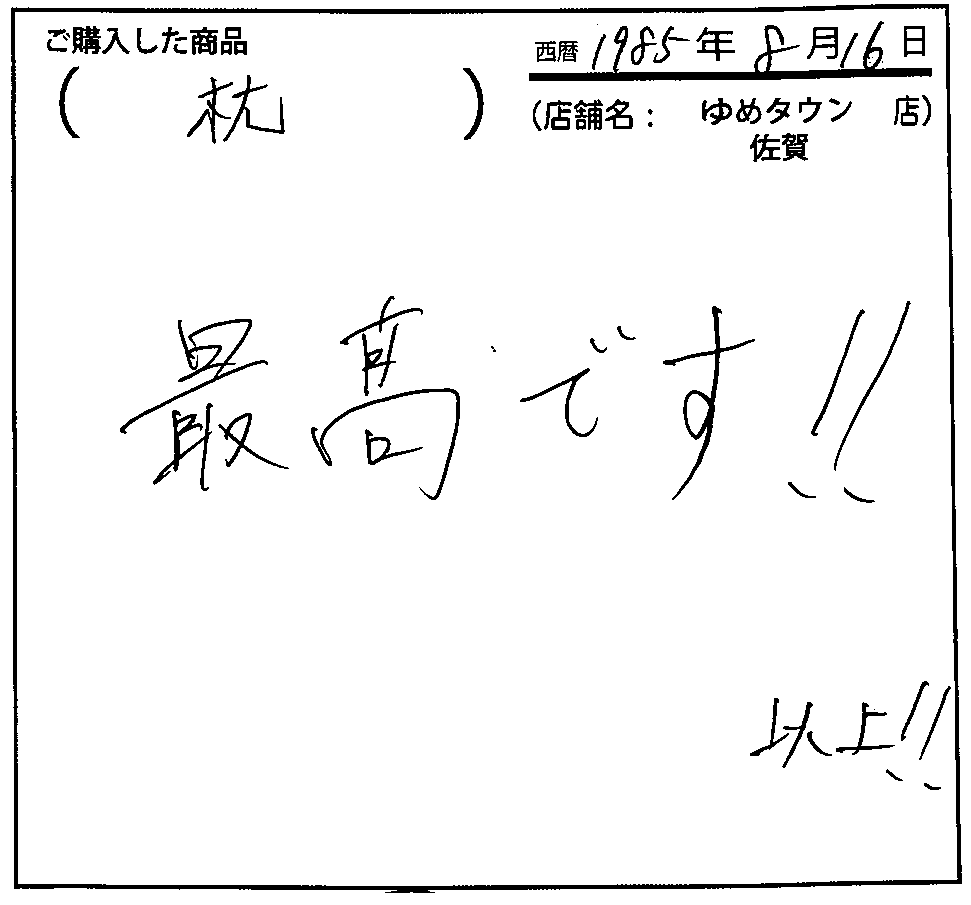 ご購入した商品
(枕)
西暦 1985年 8月16日
(店舗名: ゆめタウン 店)
佐賀
最高です!!
以上!!